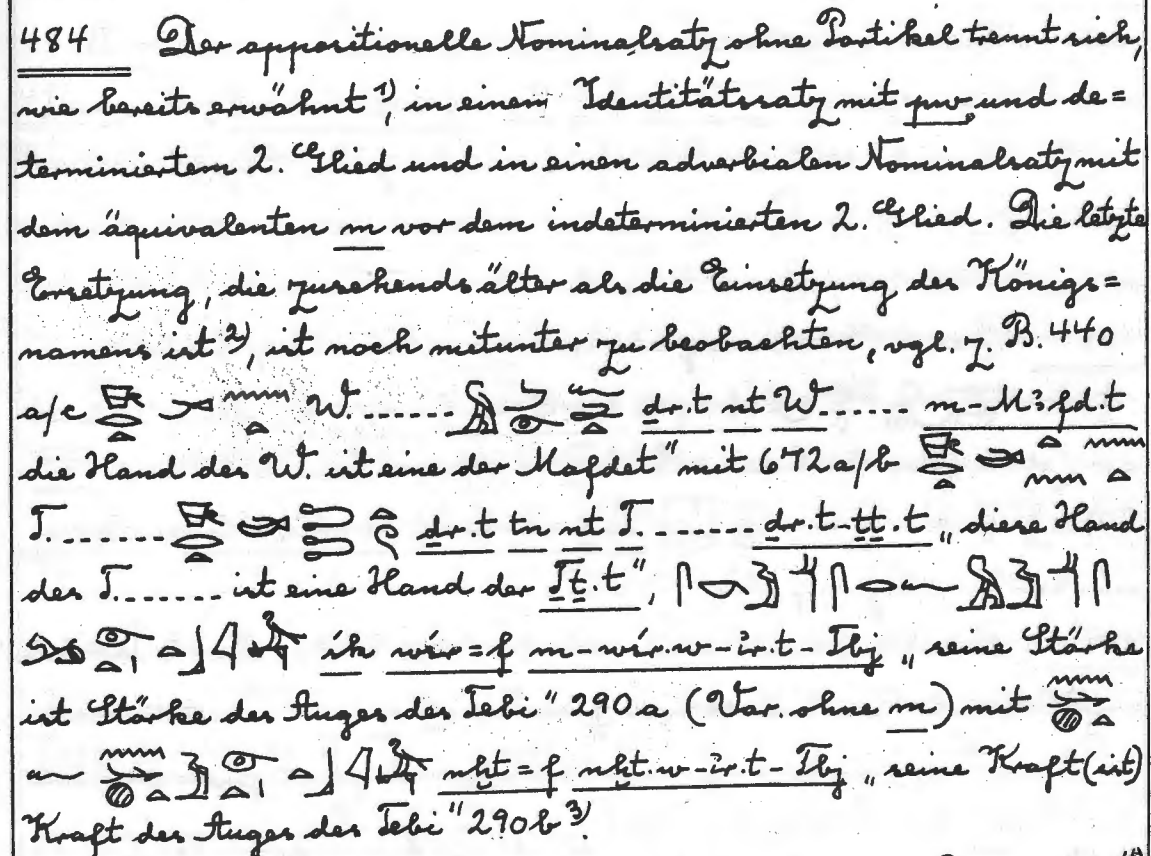 484 Der appositionelle Nominalsatz ohne Partikel trennt sich,
wie bereits erwähnt 1), in einem Identitätssatz mit pw und de=
terminiertem 2. Glied und in einen adverbialen Nominalsatz mit
dem äquivalenten m vor dem indeterminierten 2. Glied. Die letzte
Ersetzung, die zusehends älter als die Einsetzung des Königs=
namens ist 2), ist noch mitunter zu beobachten, vgl. z. B. 440
a/c W. ...... ḏr.t nt W. ...... m-Mꜣfd.t
die Hand des W. ist eine der Mafdet" mit 672 a/b
T. ....... ḏr.t tn nt T. ...... ḏr.t-ṯṯ.t „diese Hand
des T. ....... ist eine Hand der Ṯṯ.t",
śk wśr=f m-wśr.w-ir.t-Tbj „seine Stärke
ist Stärke des Auges des Tebi" 290 a (Var. ohne m) mit
nḫt=f nḫt.w-ir.t-Tbj „seine Kraft (ist)
Kraft des Auges des Tebi" 290 b 3).